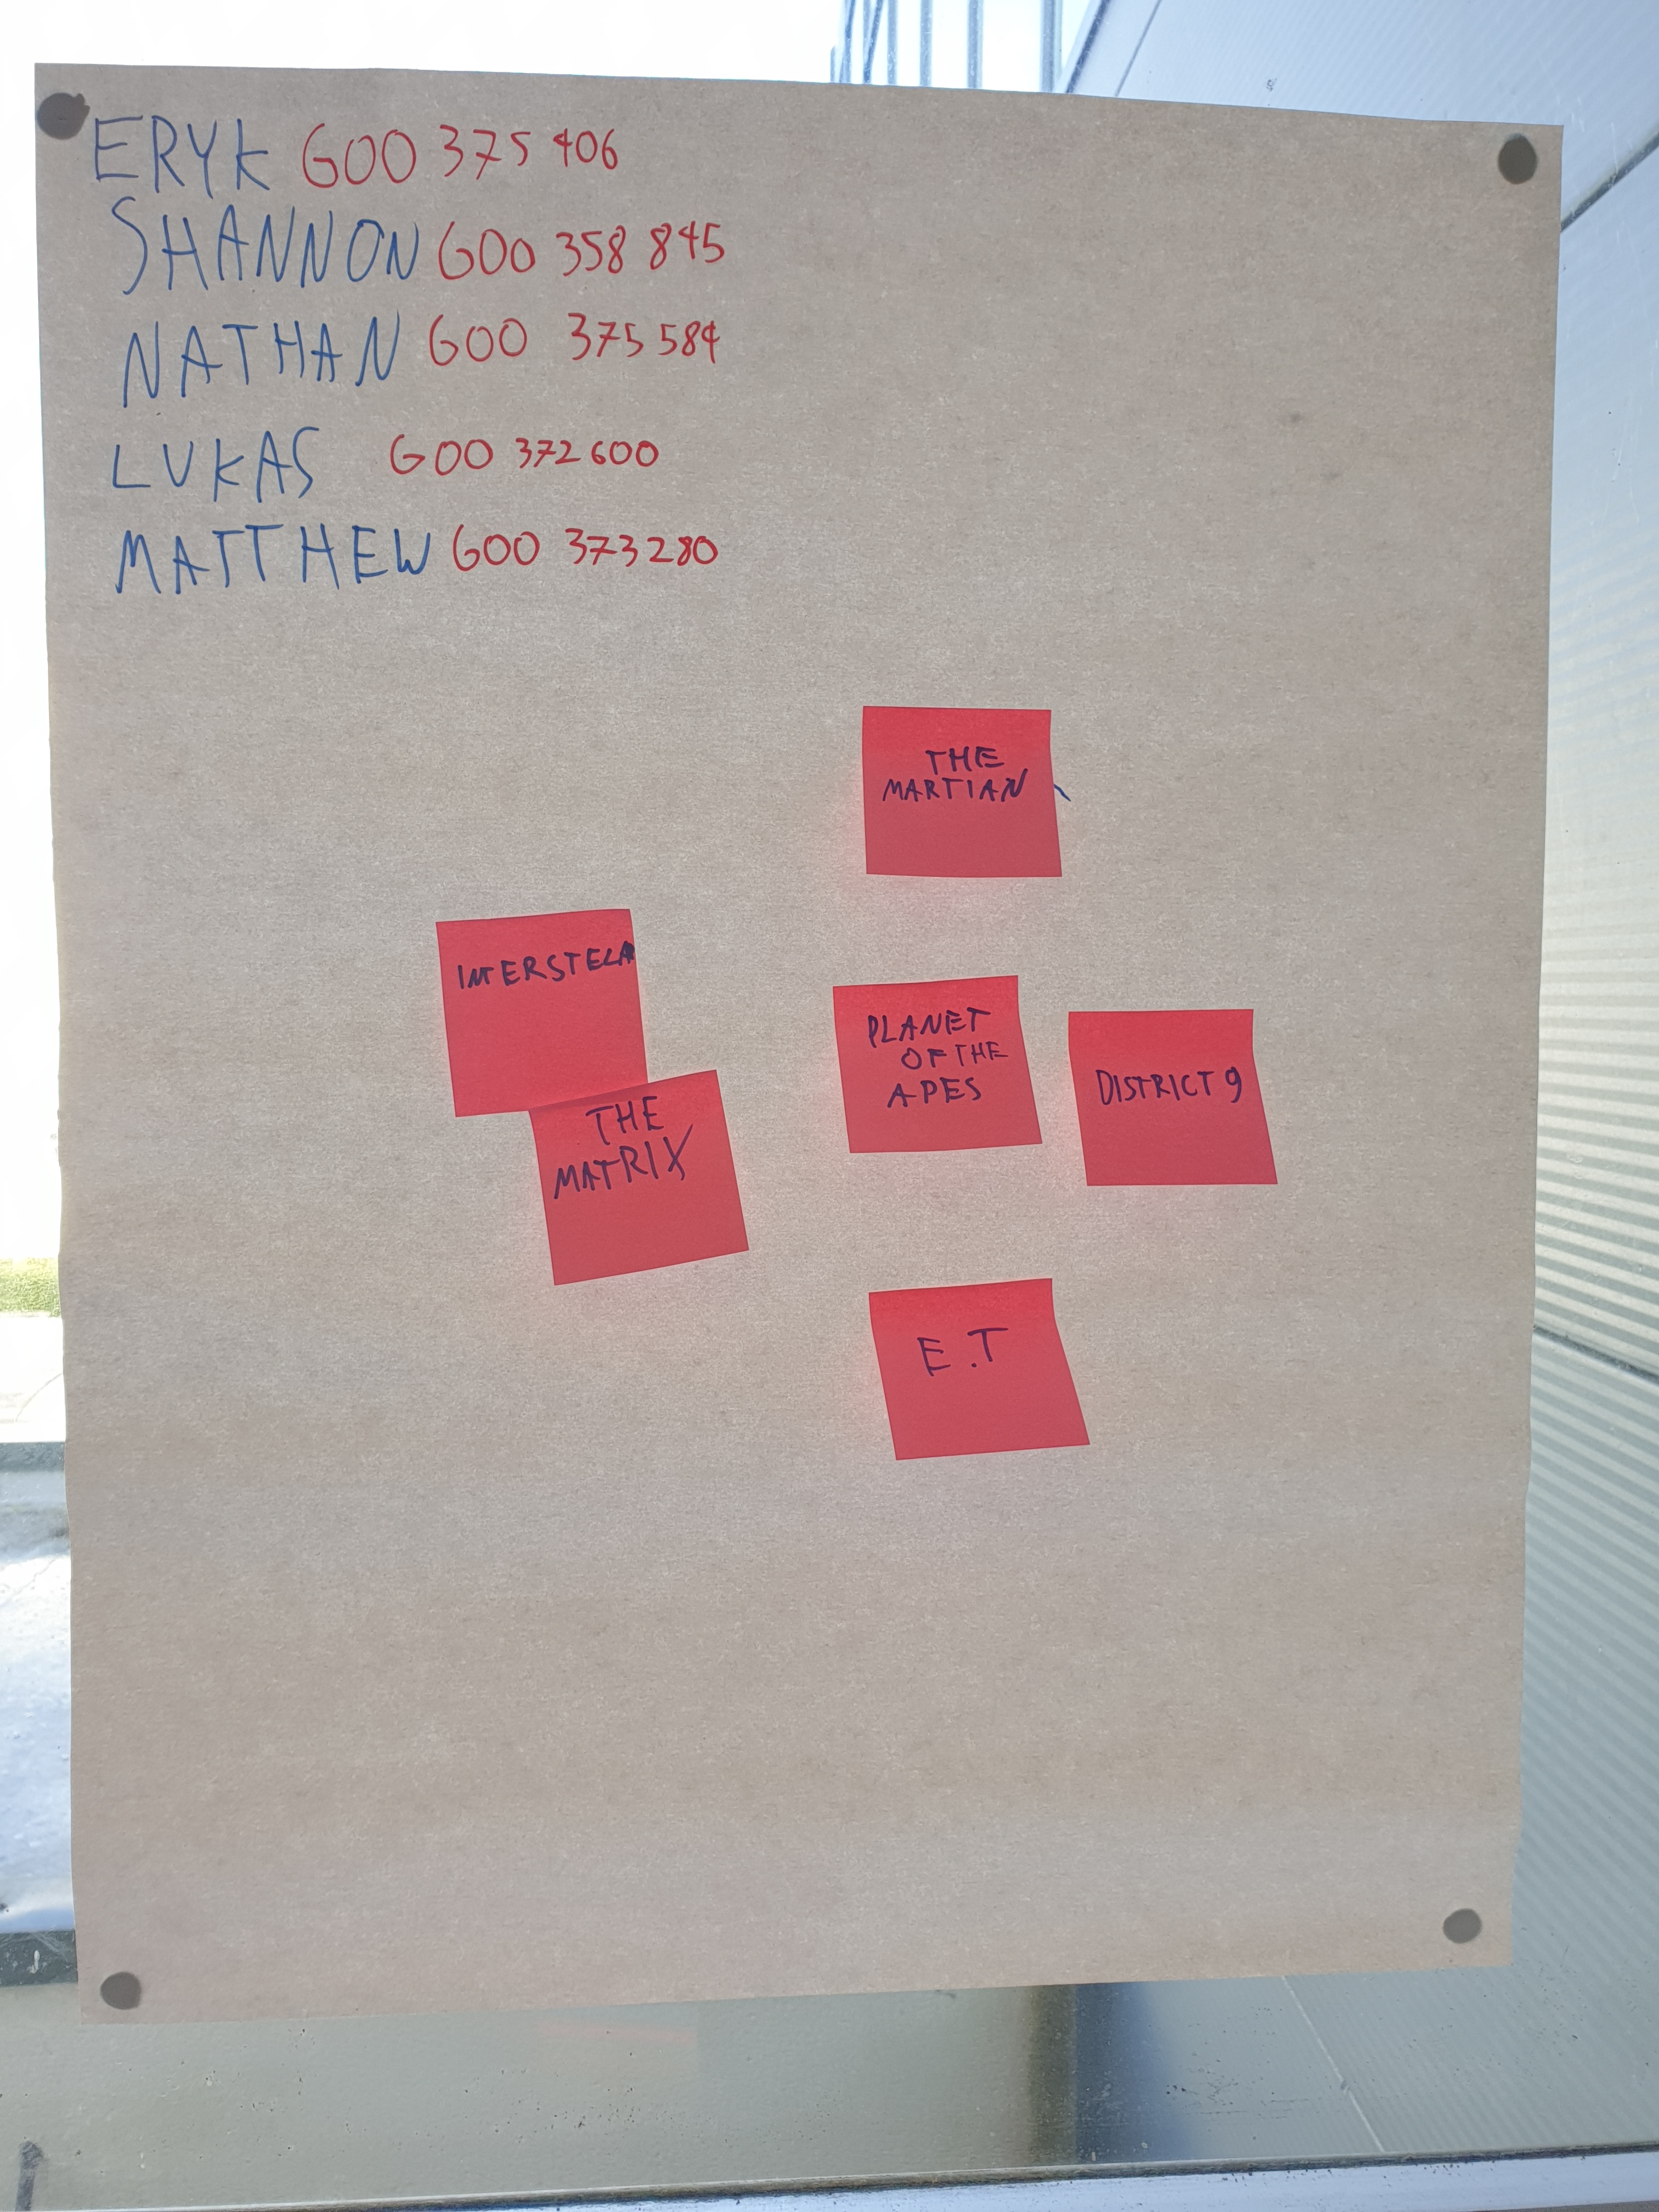 ERYK G00 375 406
SHANNON G00 358 845
NATHAN G00 375 584
LUKAS G00 372 600
MATTHEW G00 373 280
THE
MARTIAN
INTERSTELA
PLANET
OF THE
APES
DISTRICT 9
THE
MATRIX
E.T